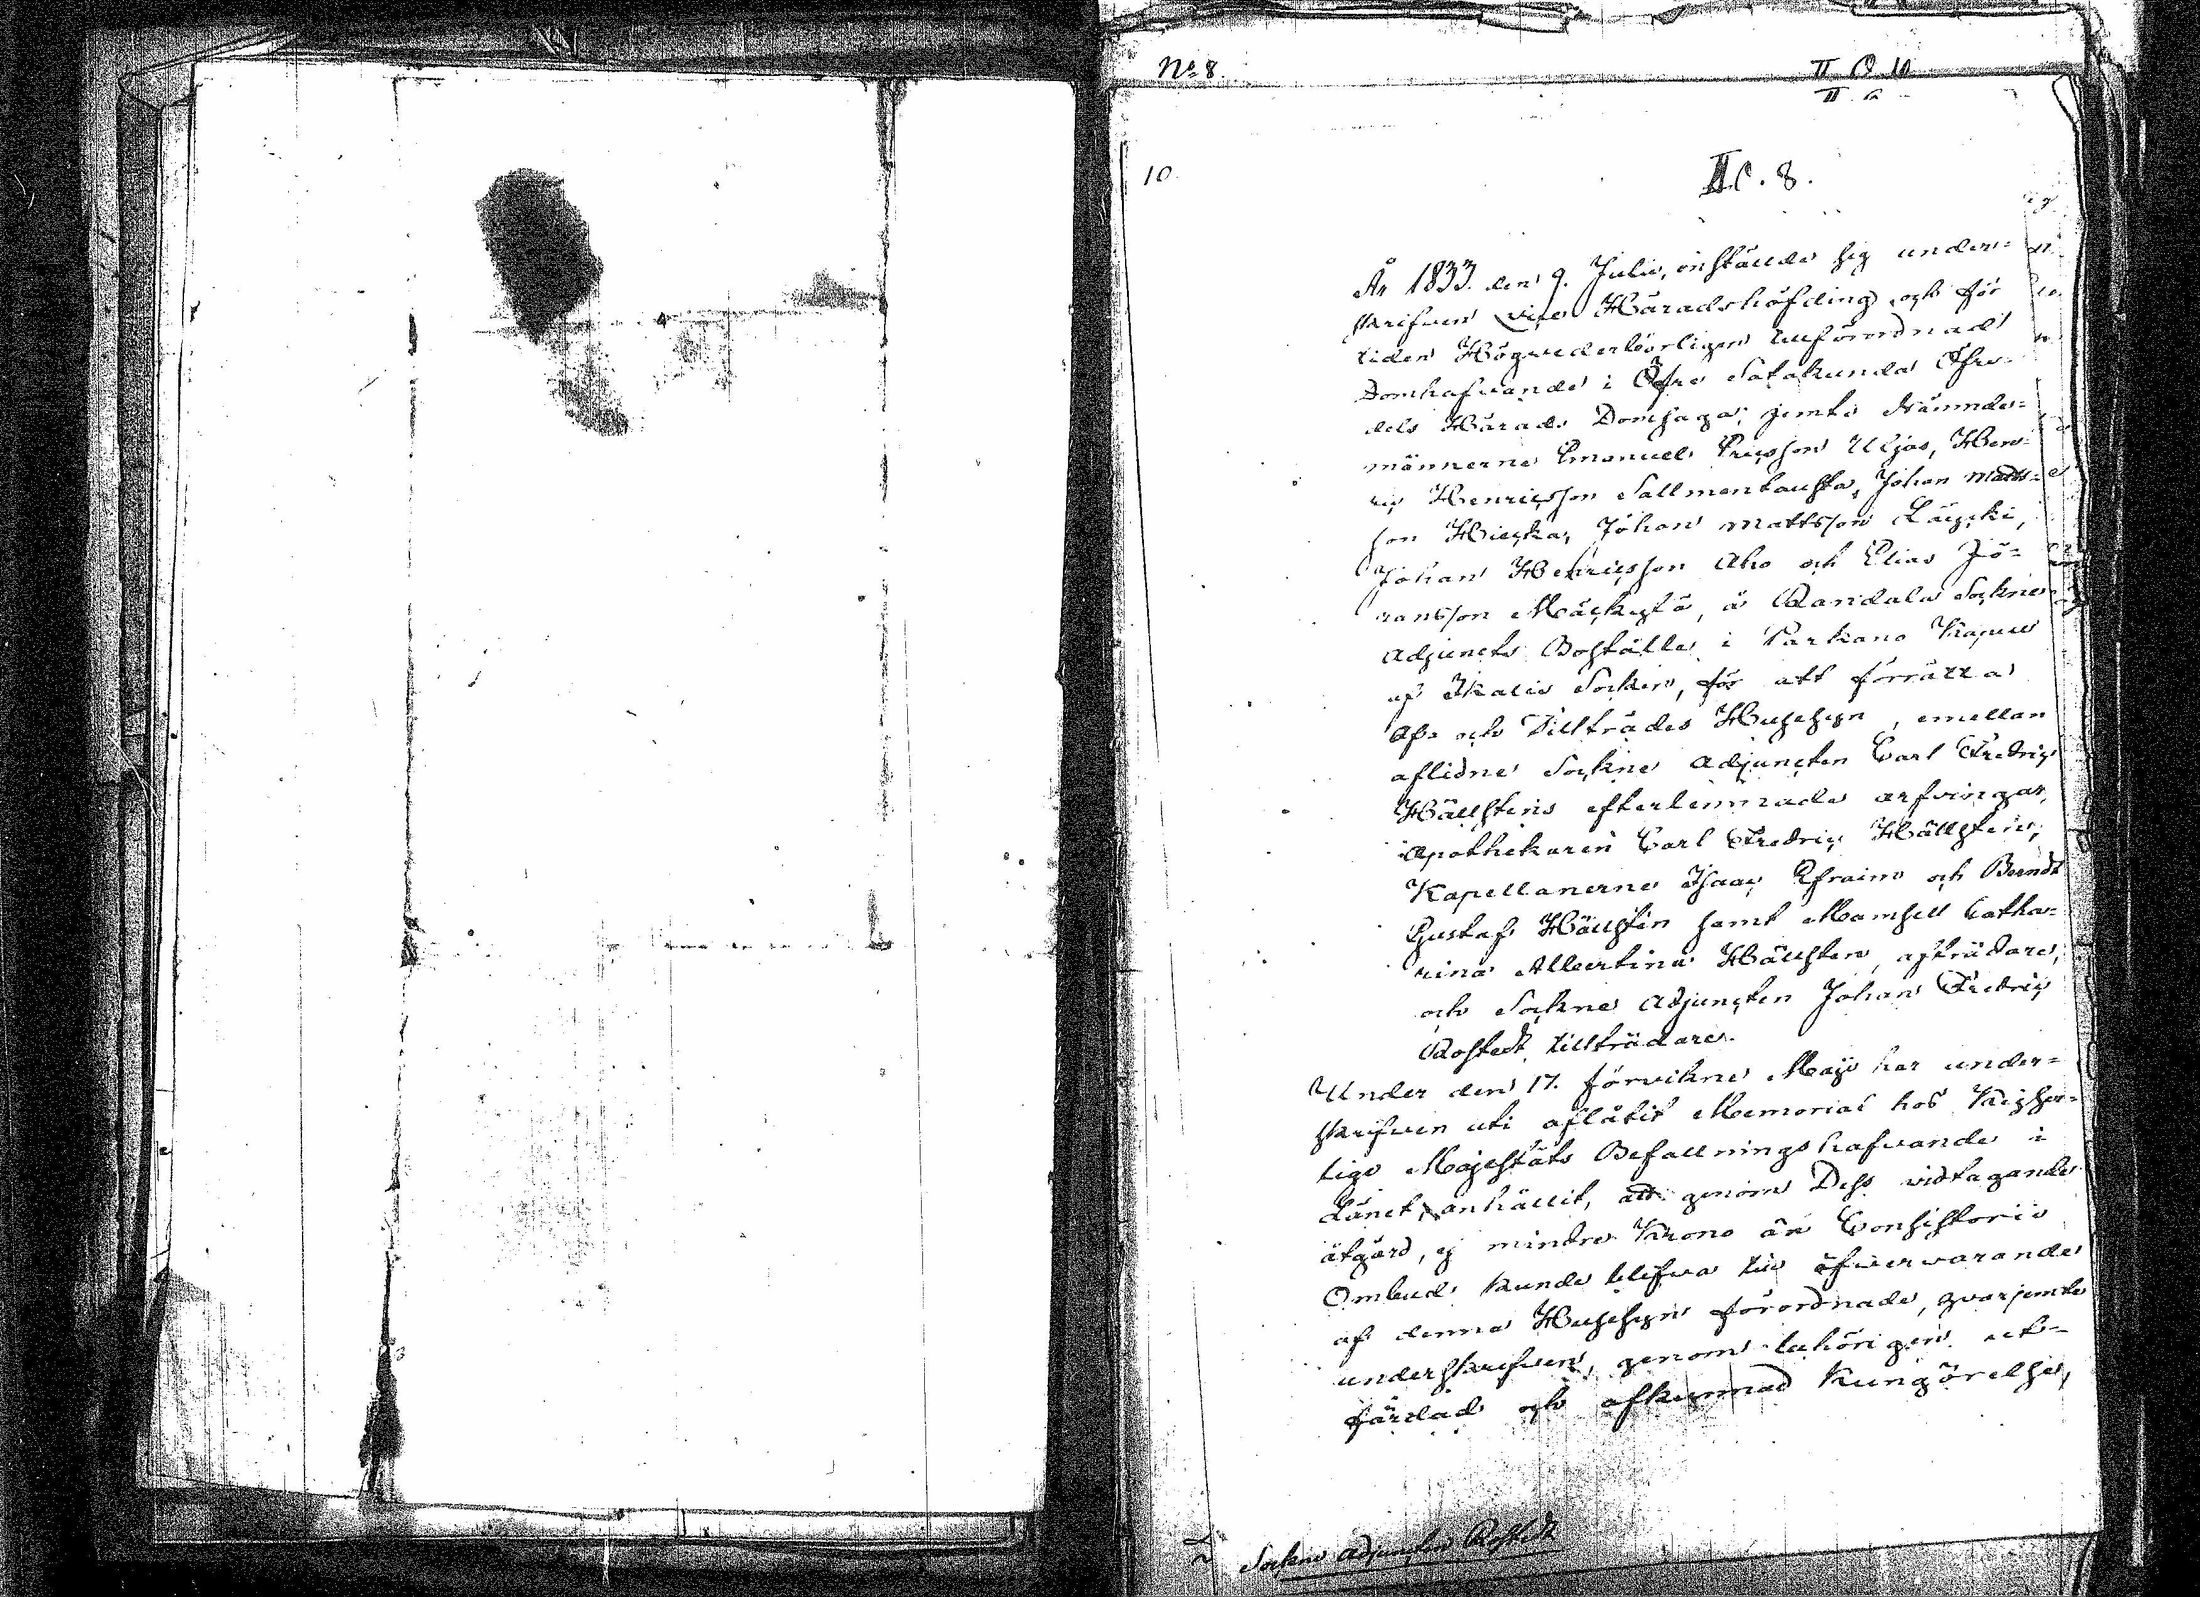 No 8.
II O 10
II a
10
II.C.8.
År 1833. den 9. Julii, instälde sig under-
skrifven vice Häradshöfding och för
tiden Högvederbörligen tillförordnad
Domhafvande i Öfre Satakunda Öfre
dels Härads Domsaga; jemte Nämnde-
männerne Emanuel Ericsson Uljas, Hen-
ric Henricsson Sallmentausta, Johan Matts-
son Johan Mattsson
Johan Henricsson Aho och Elias Jö-
ransson å Sockne
Adjuncts Boställe i Parkano Kapell
af Ikalis Socken, för att förrätta
Af- och Tillträdes Husesyn, emellan
aflidne Sockne Adjuncten Carl Fredric
Hällstens efterlemnade arfvingar,
Apothekaren Carl Fredric Hällsten,
Kapellanerne Isaac Efraim och Berndt
Gustaf Hällstén samt Mamsell Catha-
rina Albertina Hällsten, afträdare,
och Sockne Adjuncten Johan Fredric
Rostedt tillträdare.
Under den 17. förvikne Maji har under-
skrifven uti aflåtit Memorial hos Kejser-
lige Majestäts Befallningshafvande i
Länet anhållit, att genom Dess vidtagande
åtgärd, ej mindre Krono än Consistorii
Ombud kunde blifva till öfvervarande
af denna Husesyn förordnade, hvarjemte
underskrifven, genom behörigen ut-
färdad och afkunnad Kungörelse,
Sockne Adjuncten Rostedt